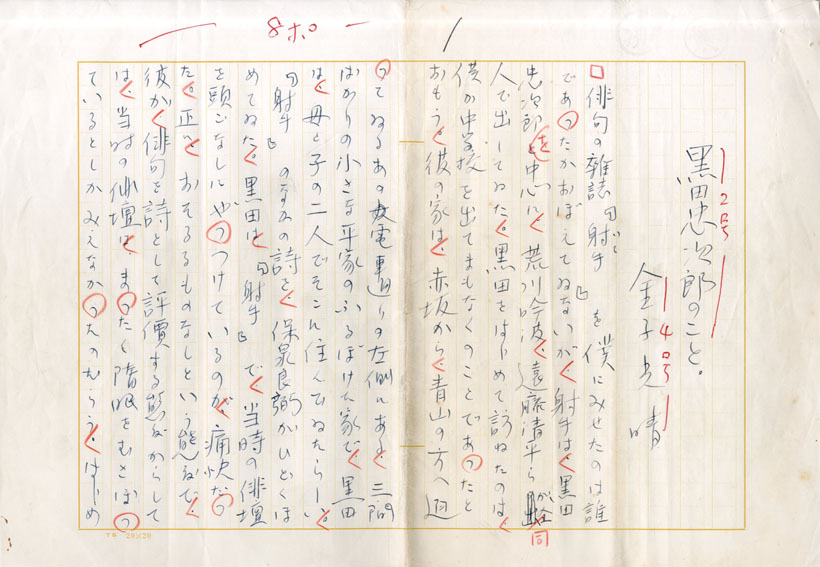 8ポ
黒田忠次郎のこと。
2号
金子光晴
4号
俳句の雑誌『射手』を僕にみせたのは誰
であつたかおぼえてゐないが、射手は、黒田
忠次郎を中心に、荒川吟波、遠藤清平ら
人で出してゐた。黒田をはじめて訪ねたのは、
僕が中学校を出てまもなくのことであつたと
おもう。彼の家は、赤坂から、青山の方へ廻
つてゐるあの電車通りの左側にある、三間
ばかりの小さな平家のふるぼけた家で、黒田
は、母と子の二人でそこに住んでゐたらしい。
『射手』のなかの詩を、保泉良弼がひどくほ
めてゐた。黒田は、『射手』で、当時の俳壇
を頭ごなしにやつつけているのが、痛快だつ
た。正に、おそるるものなしという態度で、
彼が、俳句を詩として評價する態度からして
は、当時の俳壇は、まつたく隋眠をむさぼつ
ているとしかみえなかつたのだらう。はじめ
同
TS 20×20